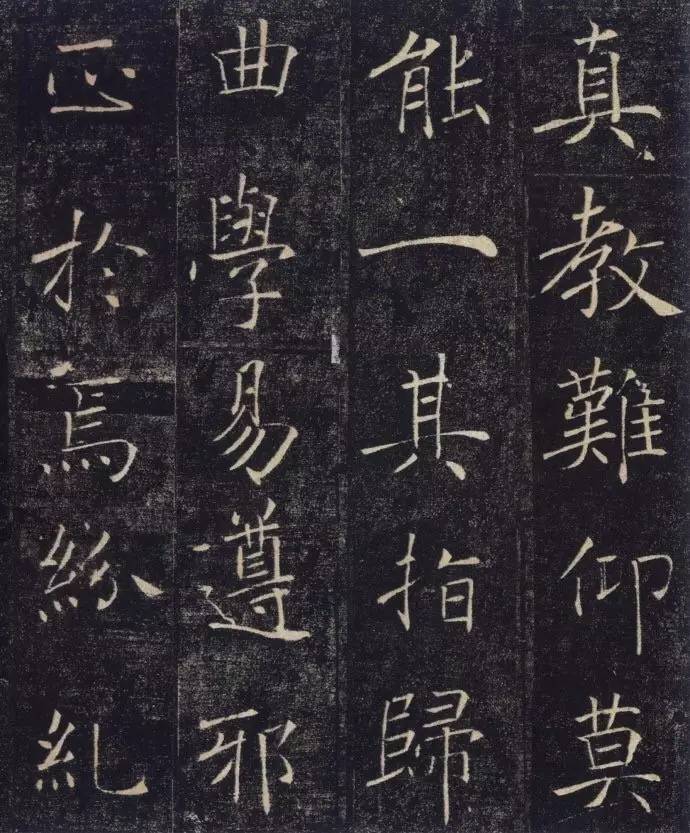 真教難仰莫
能一其指歸
曲學易遵邪
正於焉紛糺